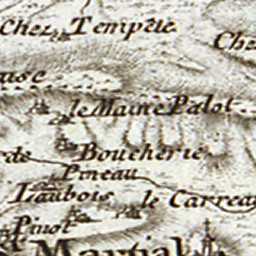 Chez Tempéte
Che
use
le Maine Palot
de
Boucherie
Pineau
Laubois
le Carreau
Pinot
Martial